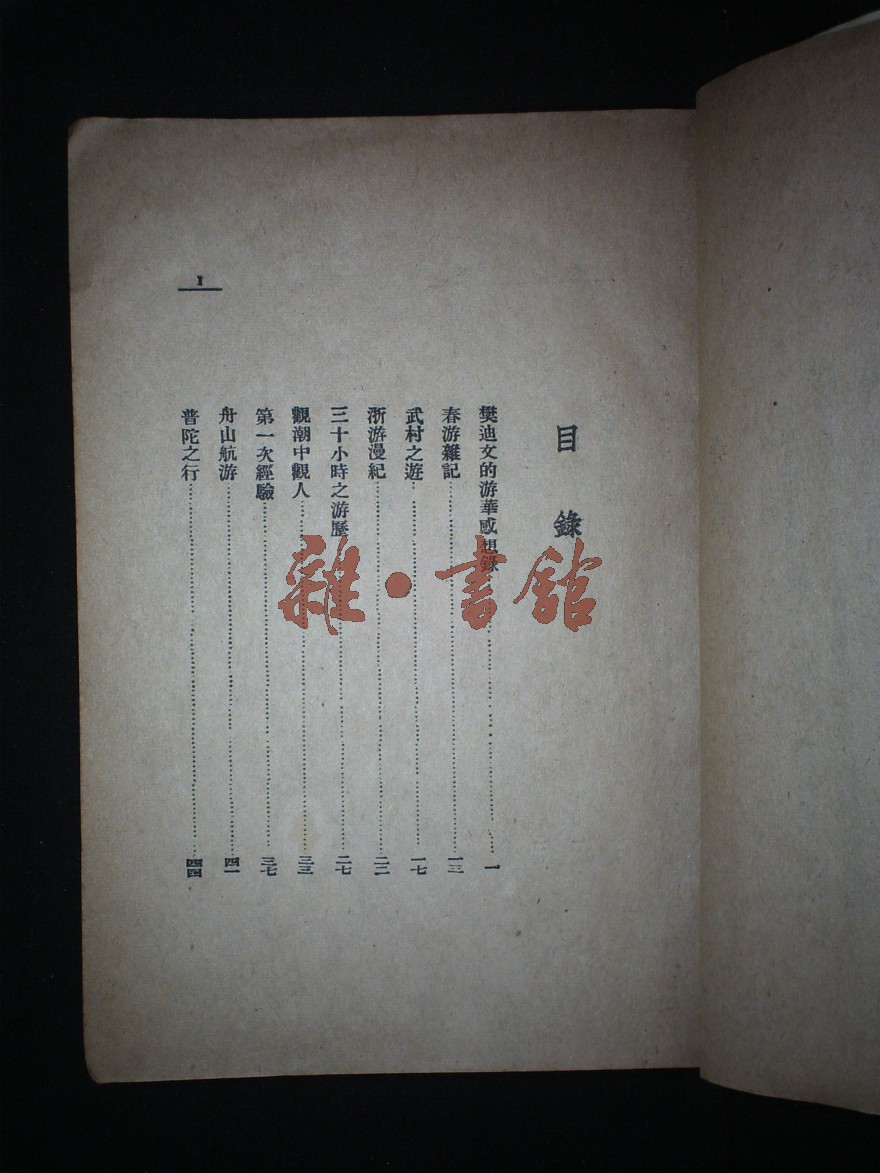 目錄
樊迪文的游華感想錄……一
春游雜記……一三
武村之遊……一七
浙游漫紀……二二
三十小時之游歷……二七
觀潮中觀人……三三
第一次經驗……三七
舟山航游……四一
普陀之行……四四
1
雜·書館